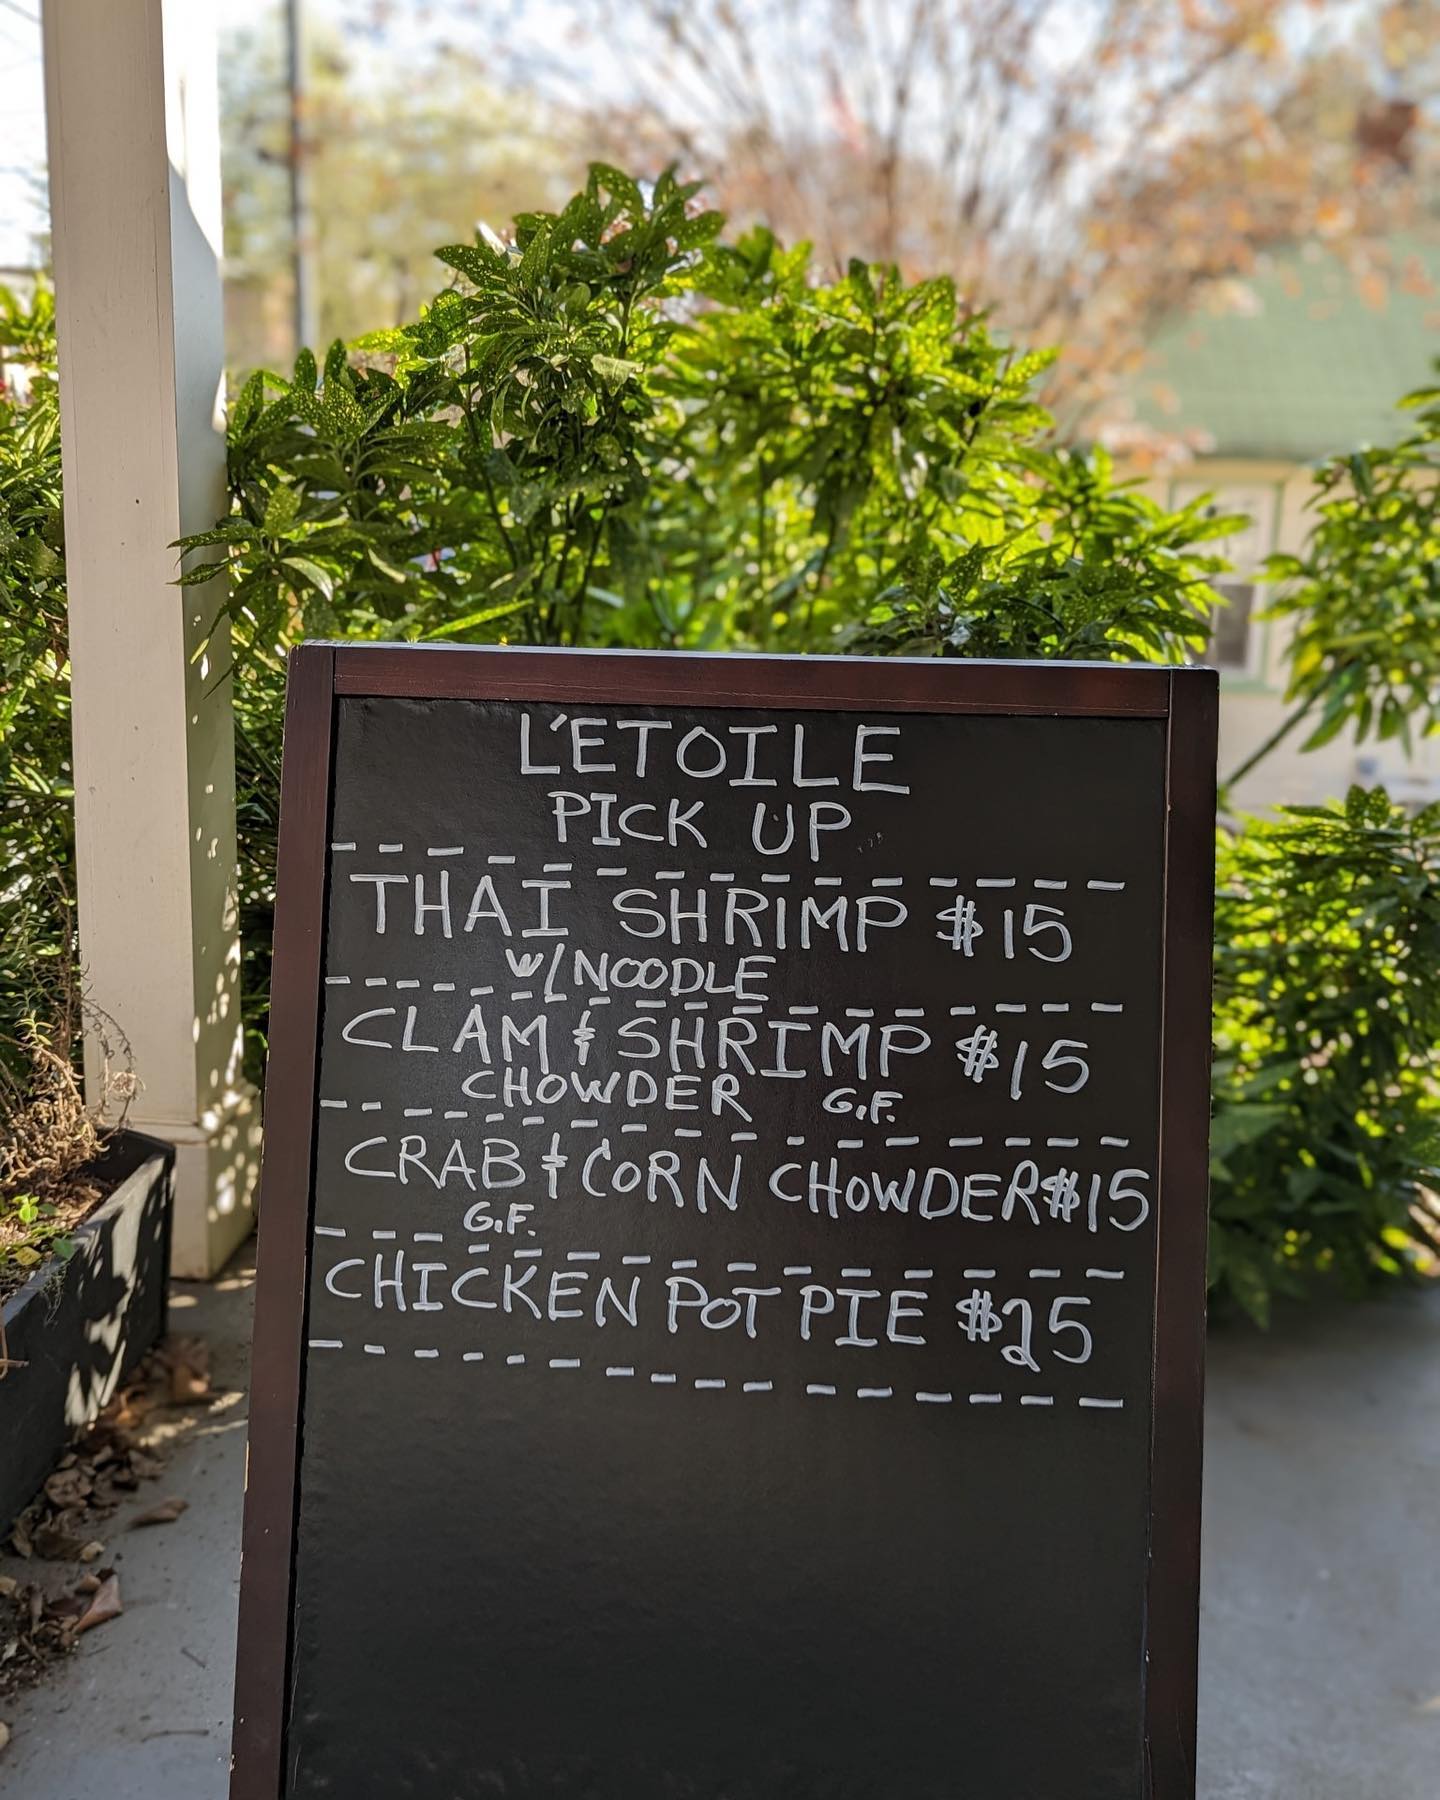 L'ETOILE
PICK UP
THAI SHRIMP $15
W/NOODLE
CLAM & SHRIMP $15
CHOWDER G.F.
CRAB & CORN CHOWDER $15
G.F.
CHICKEN POT PIE $25